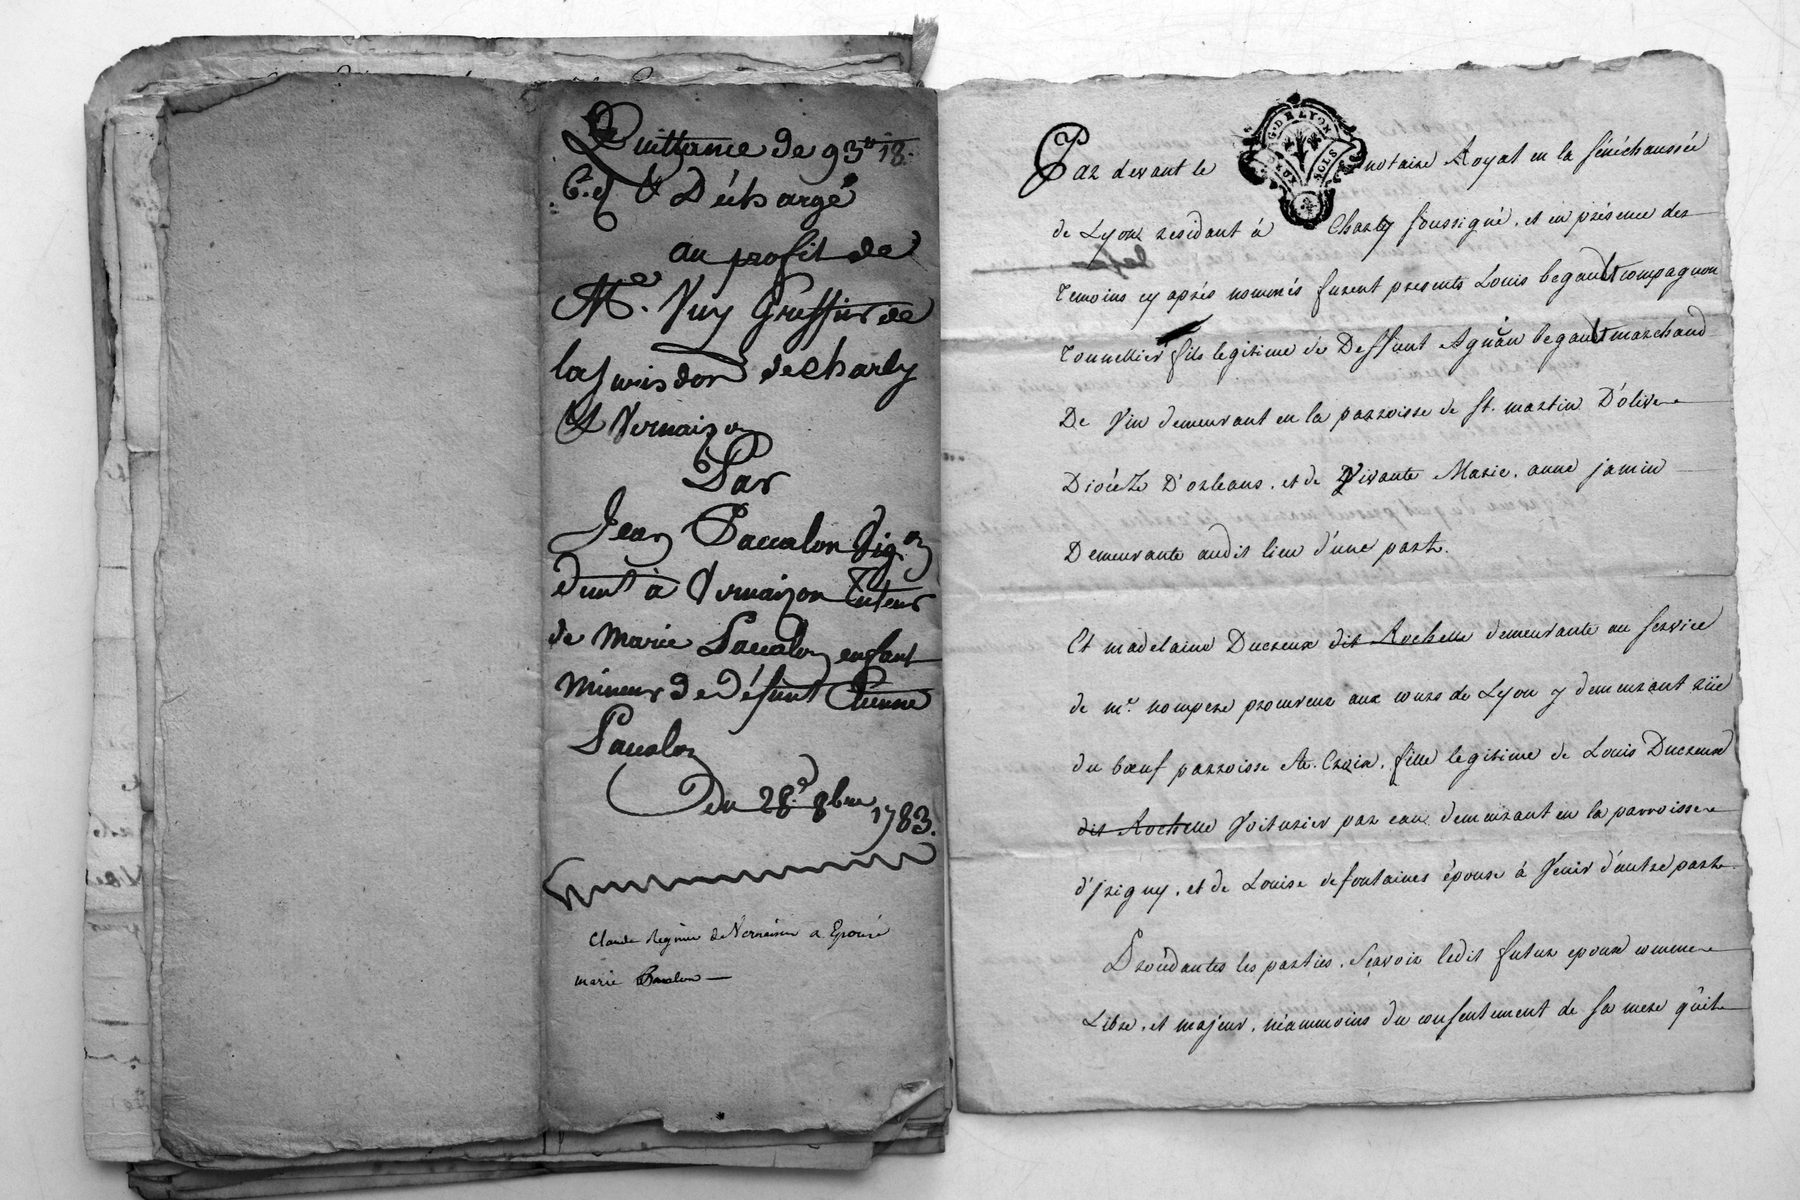 Quittance de 93 tt 18.
6.d & Décharge
au profit de
Me. Vuy Greffier de
la Jurisdon de charly
& Vernaizon
Par
Jean Paccalon Vig.on
dmt à Vernaizon Tuteur
de Marie Paccalon enfant
Mineur de défunt Etienne
Paccalon
Du 28.e 8bre
1783.
Claude Regnier de Vernaison a Epousé
marie Pacalon
GEN. DE LYON
SOLS
Par devant le notaire Royal en la sénéchaussée
de Lyon residant à Charly soussigné, et en présence des
temoins cy après nommés furent presents Louis begault compagnon
tonnellier fils legitime de Deffunt Agnan begault marchand
De Vin demeurant en la parroisse de st. martin D'olivere
Diocéze D'orleans, et de Vivante Marie, anne jamin
Demeurante audit lieu d'une part.
Et madelaine Ducreux dit Rochelle demeurante au service
de me. nompere procureur aux cours de Lyon y demeurant rüe
du bœuf parroisse Ste. Croix, fille legitime de Louis Ducreux
dit Rochelle Voiturier par eau demeurant en la parroisse
d'Irigny, et de Louise defontaines épouse à Venir d'autre part
Procédantes les parties, Sçavoir ledit futur epoux comme
Libre, et majeur, néammoins du consentement de sa mere qu'il